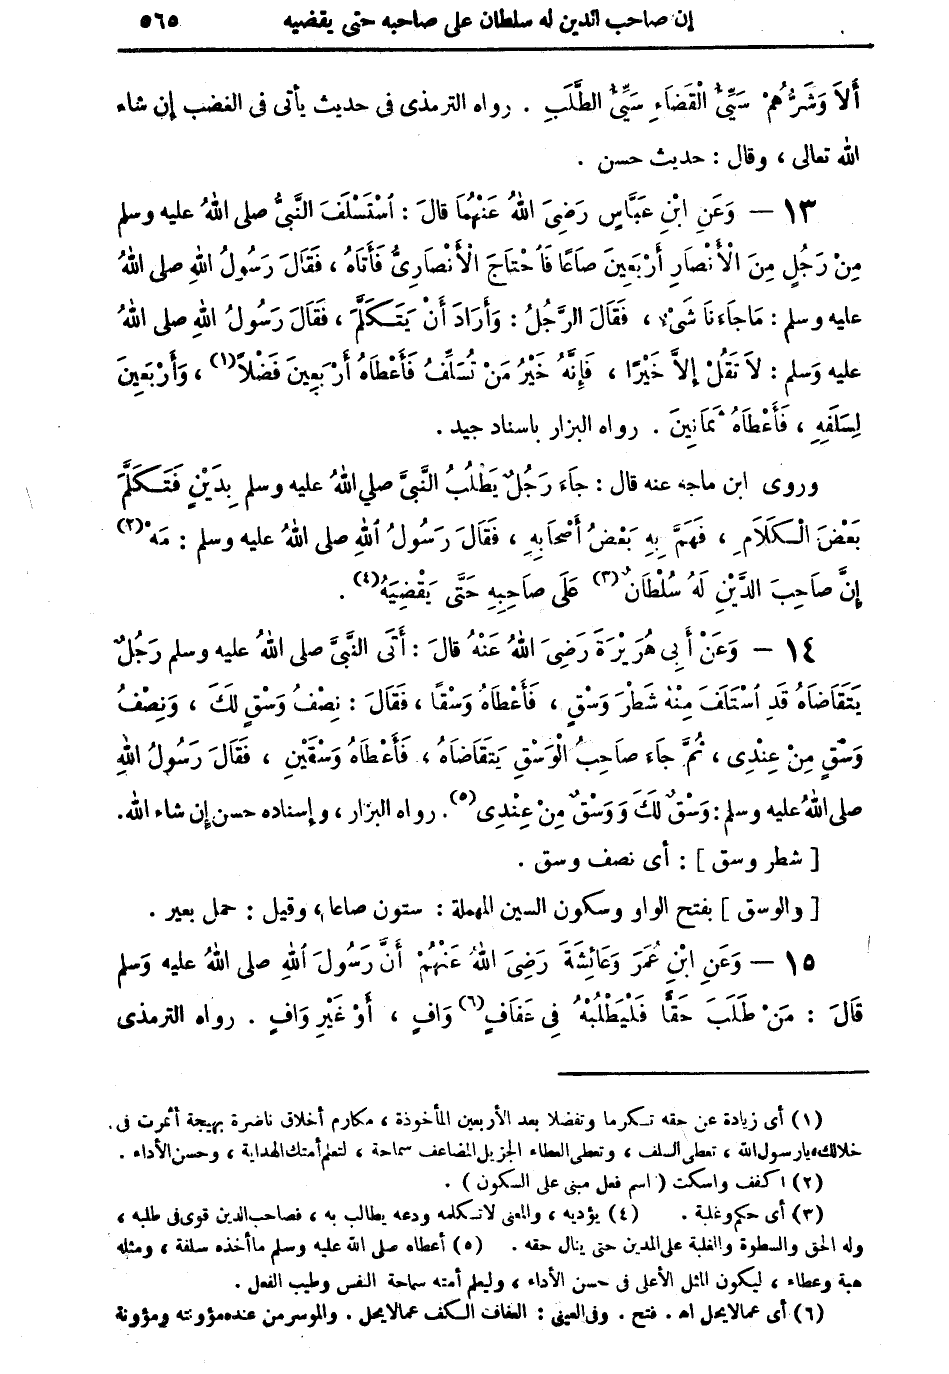 إن صاحب الدين له سلطان على صاحبه حتى يقضيه ٥٦٥
أَلاَ وَشَرُّهُمْ سَيِّئُ الْقَضَاءِ سَيِّئُ الطَّلَبِ . رواه الترمذى فى حديث يأتى فى الغضب إن شاء
الله تعالى ، وقال : حديث حسن .
١٣ — وَعَنِ ابْنِ عَبَّاسٍ رَضِيَ اللهُ عَنْهُمَا قالَ : اُسْتَسْلَفَ النَّبِيُّ صلى اللهُ عليه وسلم
مِنْ رَجُلٍ مِنَ الْأَنْصَارِ أَرْبَعِينَ صَاعًا فَاُحْتَاجَ الْأَنْصَارِىُّ فَأَتَاهُ ، فَقَالَ رَسُولُ اللهِ صلى اللهُ
عليه وسلم : مَا جَاءَنَا شَىْءٌ ، فَقَالَ الرَّجُلُ : وَأَرَادَ أَنْ يَتَكَلَّمَ ، فَقَالَ رَسُولُ اللهِ صلى اللهُ
عليه وَسلم : لاَ تَقُلْ إِلاَّ خَيْرًا ، فَإِنَّهُ خَيْرُ مَنْ تُسَلِّفُ فَأَعْطَاهُ أَرْبَعِينَ فَضْلاً (١) ، وَأَرْبَعِينَ
لِسَلَفِهِ ، فَأَعْطَاهُ ثَمَانِينَ . رواه البزار بإسناد جيد .
وروى ابن ماجه عنه قال : جَاءَ رَجُلٌ يَطْلُبُ النَّبِيَّ صلي اللهُ عليه وسلم بِدَيْنٍ فَتَكَلَّمَ
بَعْضَ الْكَلَامِ ، فَهَمَّ بِهِ بَعْضُ أَصْحَابِهِ ، فَقَالَ رَسُولُ اللهِ صلى اللهُ عليه وسلم : مَهْ (٢)
إِنَّ صَاحِبَ الدَّيْنِ لَهُ سُلْطَانٌ (٣) عَلَى صَاحِبِهِ حَتَّى يَقْضِيَهُ (٤) .
١٤ — وَعَنْ أَبِى هُرَيْرَةَ رَضِيَ اللهُ عَنْهُ قالَ : أَتَى النَّبِيَّ صلى اللهُ عليه وسلم رَجُلٌ
يَتَقَاضَاهُ قَدِ اُسْتَلَفَ مِنْهُ شَطْرَ وَسْقٍ ، فَأَعْطَاهُ وَسْقًا ، فَقَالَ : نِصْفُ وَسْقٍ لَكَ ، وَنِصْفُ
وَسْقٍ مِنْ عِنْدِى ، ثُمَّ جَاءَ صَاحِبُ الْوَسْقِ يَتَقَاضَاهُ ، فَأَعْطَاهُ وَسْقَيْنِ ، فَقَالَ رَسُولُ اللهِ
صلى اللهُ عليه وسلم : وَسْقٌ لَكَ وَوَسْقٌ مِنْ عِنْدِى (٥) . رواه البزار ، وإسناده حسن إن شاء الله.
[ شطر وسق ] : أى نصف وسق .
[ والوسق ] بفتح الواو وسكون السين المهملة : ستون صاعا ، وقيل : حمل بعير .
١٥ — وَعَنِ ابْنِ عُمَرَ وَعَائِشَةَ رَضِيَ اللهُ عَنْهُمْ أَنَّ رَسُولَ اللهِ صلى اللهُ عليه وَسلم
قَالَ : مَنْ طَلَبَ حَقًّا فَلْيَطْلُبْهُ فِى عَفَافٍ (٦) وَافٍ ، أَوْ غَيْرِ وَافٍ . رواه الترمذى
(١) أى زيادة عن حقه تكرما وتفضلا بعد الأربعين المأخوذة ، مكارم أخلاق ناضرة بهيجة أثمرت فى
خلالك يا رسول الله ، تعطى السلف ، وتعطى العطاء الجزيل المضاعف سماحة ، لتعلم أمتك الهداية ، وحسن الأداء .
(٢) اكفف واسكت ( اسم فعل مبنى على السكون ) .
(٣) أى حكم وغلبة . (٤) يؤديه ، والمعنى لا تكلمه ودعه يطالب به ، فصاحب الدين قوى فى طلبه ،
وله الحق والسطوة والغلبة على المدين حتى ينال حقه . (٥) أعطاه صلى الله عليه وسلم ما أخذه سلفة ، ومثله
هبة وعطاء ، ليكون المثل الأعلى فى حسن الأداء ، وليعلم أمته سماحة النفس وطيب الفعل .
(٦) أى عما لا يحل اه . فتح . وفى العينى : العفاف الكف عما لا يحل . والموسر من عنده مؤونته ومؤونة